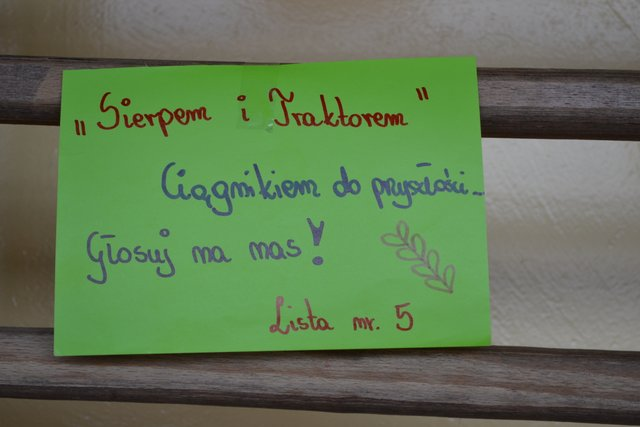 „Sierpem i Traktorem"
Ciągnikiem do pryszłości...
Głosuj na nas!
Lista nr. 5